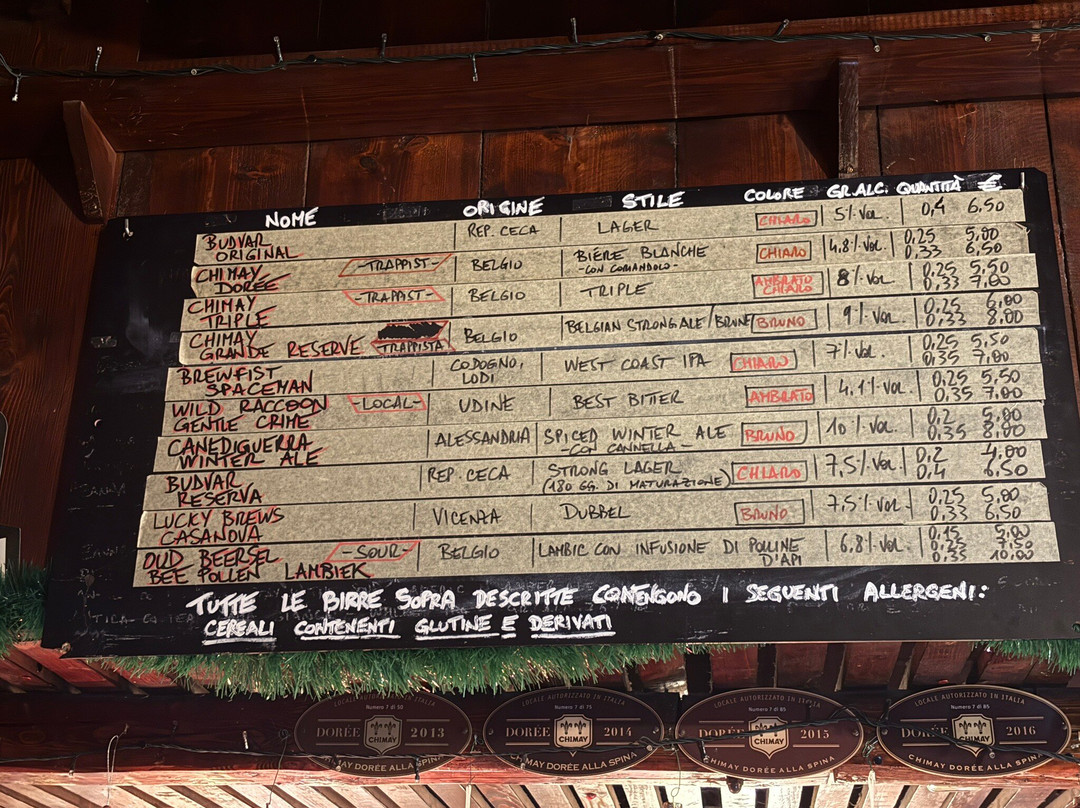 NOME ORIGINE STILE COLORE GR.ALC. QUANTITÀ €
BUDVAR ORIGINAL REP. CECA LAGER CHIARO 5% VOL. 0,4 6,50
CHIMAY DORÉE -TRAPPIST- BELGIO BIÈRE BLANCHE -CON CORIANDOLO- CHIARO 4,8% VOL. 0,25 5,00
0,33 6,50
CHIMAY TRIPLE -TRAPPIST- BELGIO TRIPLE AMBRATO CHIARO 8% VOL. 0,25 5,50
0,33 7,00
CHIMAY GRANDE RESERVE TRAPPISTA BELGIO BELGIAN STRONG ALE/BRUNE BRUNO 9% VOL. 0,25 6,00
0,33 8,00
BREWFIST SPACEMAN CODOGNO, LODI WEST COAST IPA CHIARO 7% VOL. 0,25 5,50
0,35 7,00
WILD RACCOON GENTLE CRIME -LOCAL- UDINE BEST BITTER AMBRATO 4,1% VOL 0,25 5,50
0,35 7,00
CANEDIGUERRA WINTER ALE ALESSANDRIA SPICED WINTER ALE -CON CANNELLA BRUNO 10% VOL. 0,2 5,00
0,35 8,00
BUDVAR RESERVA REP. CECA STRONG LAGER (180 GG. DI MATURAZIONE) CHIARO 7,5% VOL. 0,2 4,00
0,4 6,50
LUCKY BREWS CASANOVA VICENZA DUBBEL BRUNO 7,5% VOL. 0,25 5,00
0,33 6,50
OUD BEERSEL BEE POLLEN LAMBIEK -SOUR- BELGIO LAMBIC CON INFUSIONE DI POLLINE D'API 6,8% VOL. 0,15 5,00
0,25 7,50
0,35 10,00
TUTTE LE BIRRE SOPRA DESCRITTE CONTENGONO I SEGUENTI ALLERGENI:
CEREALI CONTENENTI GLUTINE E DERIVATI
LOCALE AUTORIZZATO IN ITALIA
Numero 7 di 50
DORÉE CHIMAY 2013
CHIMAY DORÉE ALLA SPINA
LOCALE AUTORIZZATO IN ITALIA
Numero 7 di 75
DORÉE CHIMAY 2014
CHIMAY DORÉE ALLA SPINA
LOCALE AUTORIZZATO IN ITALIA
Numero 7 di 85
DORÉE CHIMAY 2015
CHIMAY DORÉE ALLA SPINA
LOCALE AUTORIZZATO IN ITALIA
Numero 7 di 85
DORÉE CHIMAY 2016
CHIMAY DORÉE ALLA SPINA